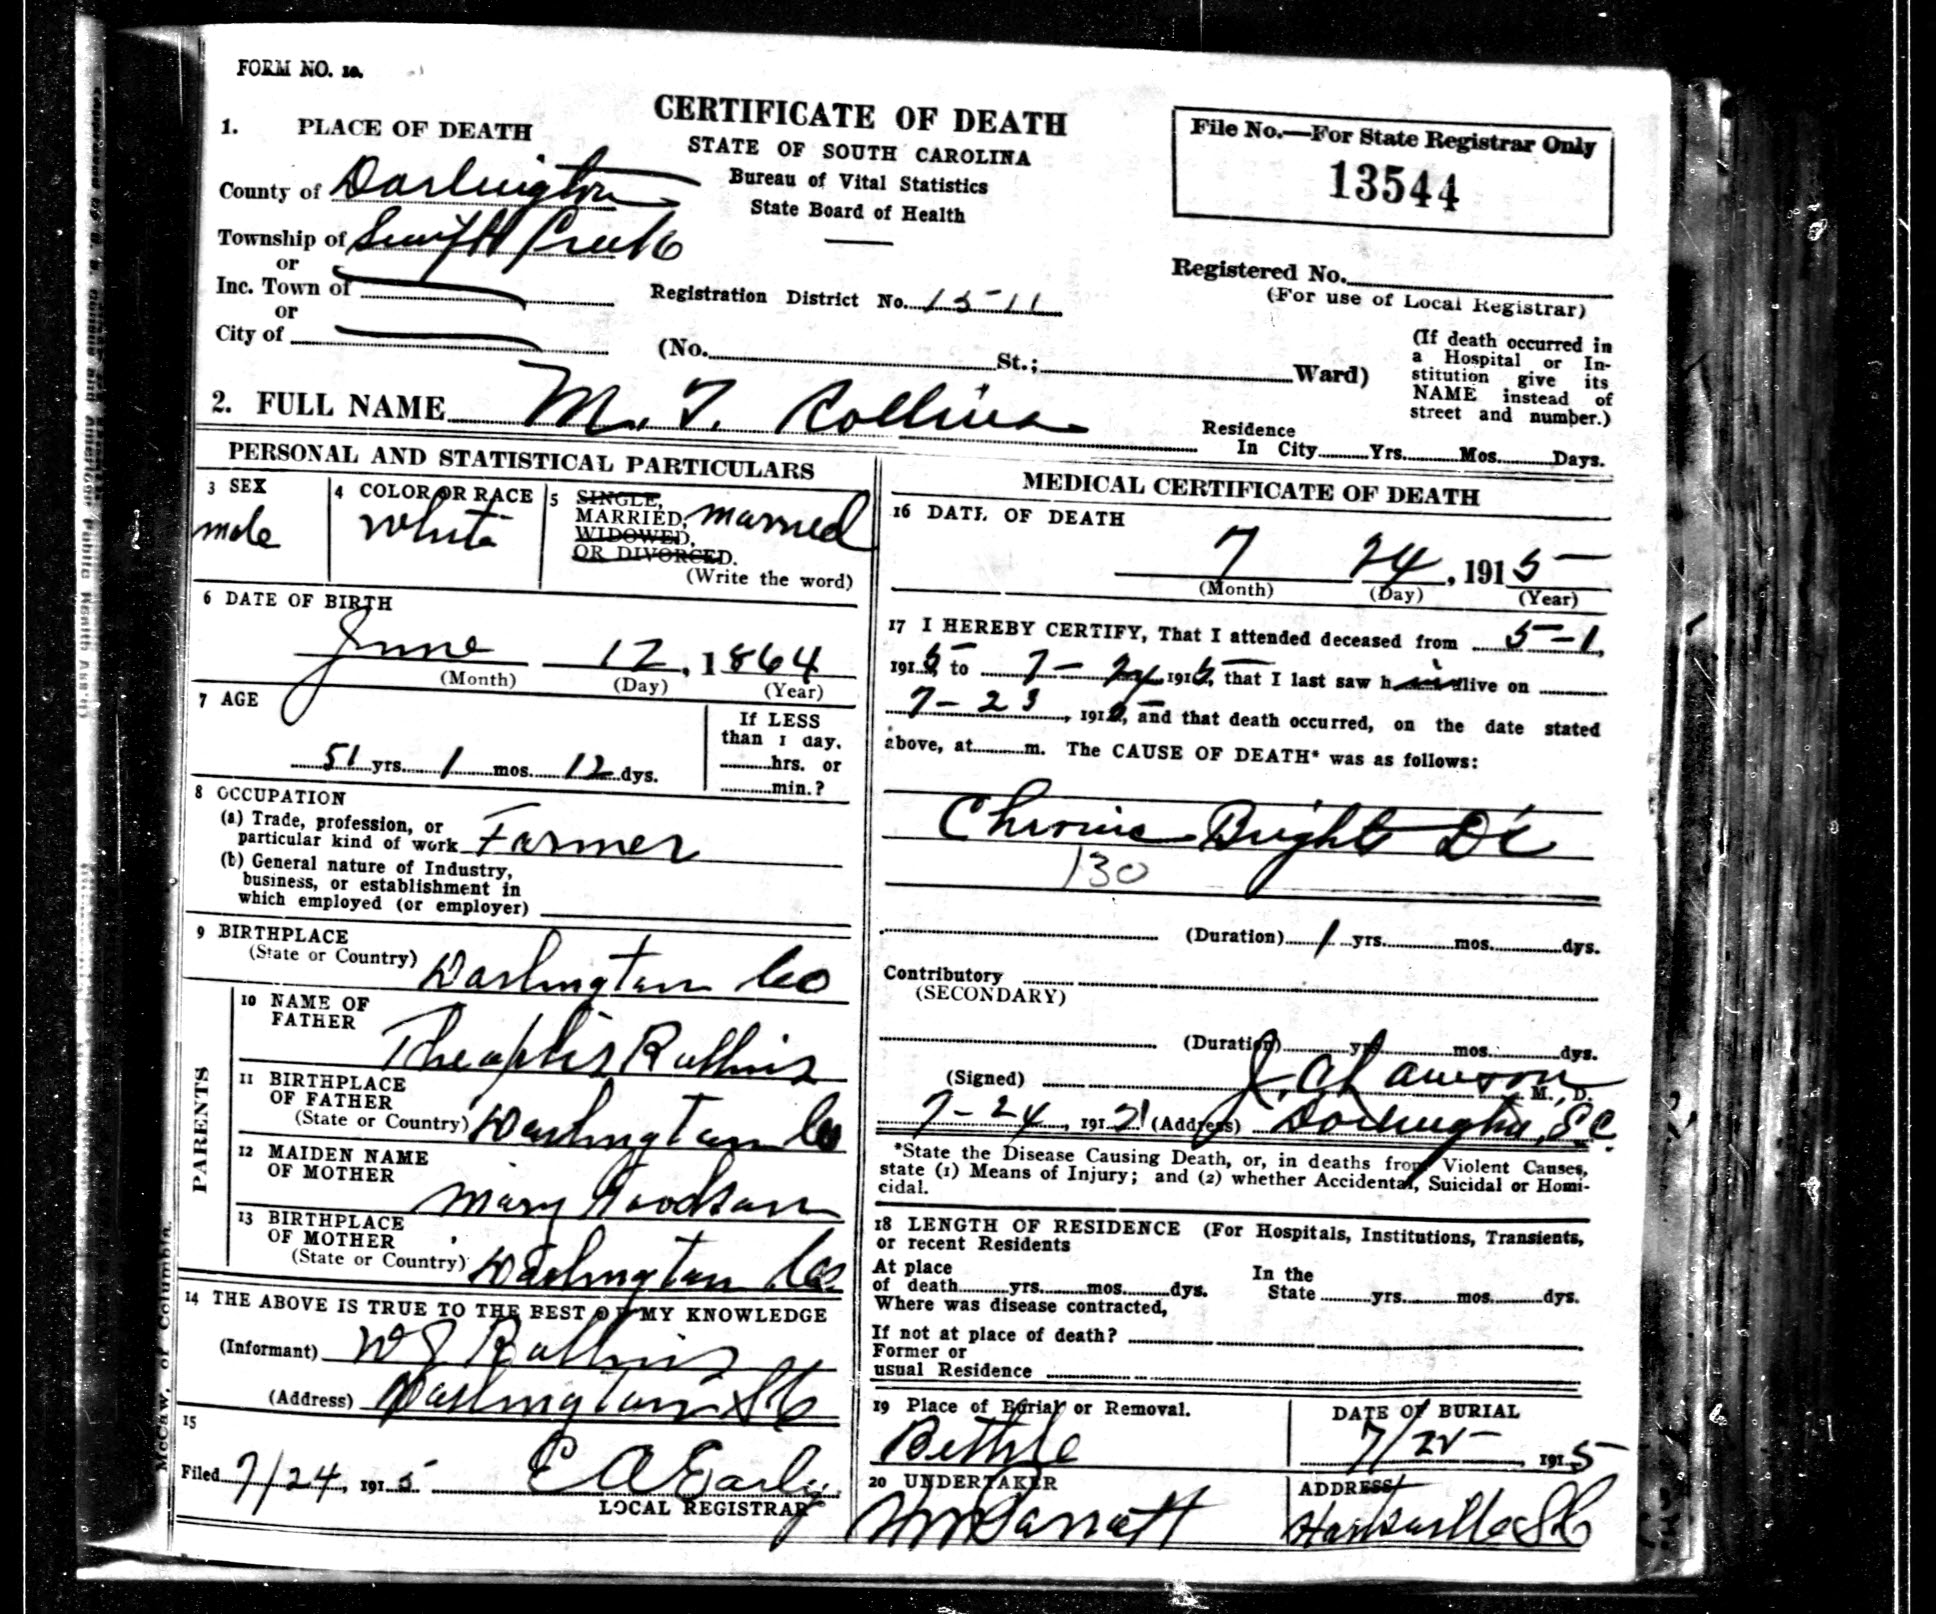 FORM NO. 10.
CERTIFICATE OF DEATH
STATE OF SOUTH CAROLINA
Bureau of Vital Statistics
State Board of Health
File No.—For State Registrar Only
13544
1. PLACE OF DEATH
County of Darlington
Township of Swift Creek
or
Inc. Town of
or
City of
Registration District No. 15-11
Registered No.
(For use of Local Registrar)
(No. St.; Ward)
(If death occurred in
a Hospital or In-
stitution give its
NAME instead of
street and number.)
2. FULL NAME M. T. Rollins
Residence
In City Yrs. Mos. Days.
PERSONAL AND STATISTICAL PARTICULARS
3 SEX
male
4 COLOR OR RACE
White
5 SINGLE,
MARRIED, married
WIDOWED,
OR DIVORCED.
(Write the word)
6 DATE OF BIRTH
June 12, 1864
(Month) (Day) (Year)
7 AGE
51 yrs. 1 mos. 12 dys.
If LESS
than 1 day.
hrs. or
min.?
8 OCCUPATION
(a) Trade, profession, or
particular kind of work Farmer
(b) General nature of Industry,
business, or establishment in
which employed (or employer)
9 BIRTHPLACE
(State or Country) Darlington Co
PARENTS
10 NAME OF
FATHER Theaphis Rollins
11 BIRTHPLACE
OF FATHER
(State or Country) Darlington Co
12 MAIDEN NAME
OF MOTHER Mary Goodson
13 BIRTHPLACE
OF MOTHER
(State or Country) Darlington Co
14 THE ABOVE IS TRUE TO THE BEST OF MY KNOWLEDGE
(Informant) W J Rollins
(Address) Darlington S C
15
Filed 7/24, 1915 E A Early
LOCAL REGISTRAR
MEDICAL CERTIFICATE OF DEATH
16 DATE OF DEATH
7 24, 1915
(Month) (Day) (Year)
17 I HEREBY CERTIFY, That I attended deceased from 5-1,
1915, to 7-24, 1915, that I last saw h im alive on
7-23, 1915, and that death occurred, on the date stated
above, at m. The CAUSE OF DEATH* was as follows:
Chronic Brights Dis
130
(Duration) 1 yrs. mos. dys.
Contributory
(SECONDARY)
(Duration) yrs. mos. dys.
(Signed) J. A. Lawson M. D.
7-24, 191 (Address) Darlington, S.C.
*State the Disease Causing Death, or, in deaths from Violent Causes,
state (1) Means of Injury; and (2) whether Accidental, Suicidal or Homi-
cidal.
18 LENGTH OF RESIDENCE (For Hospitals, Institutions, Transients,
or recent Residents
At place
of death yrs. mos. dys.
In the
State yrs. mos. dys.
Where was disease contracted,
If not at place of death?
Former or
usual Residence
19 Place of Burial or Removal.
Bethle
DATE OF BURIAL
7/25, 1915
20 UNDERTAKER
ADDRESS
Hartsville S C
McCaw, of Columbia.